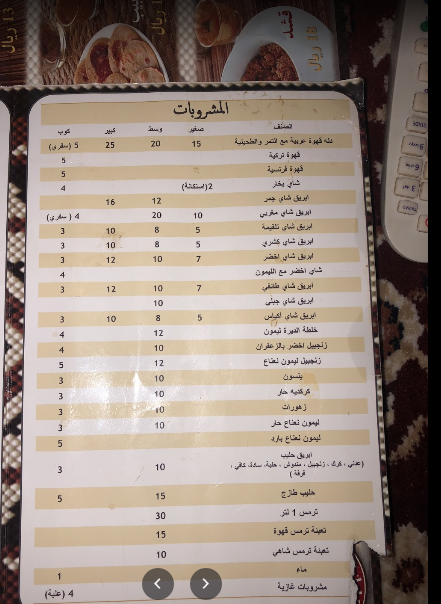 13 ريال
ريال
قشد
18 ريال
المشروبات
الصنف صغير وسط كبير كوب
دله قهوة عربية مع التمر والطحينية 15 20 25 5 (سفري)
قهوة تركية 5
قهوة فرنسية 5
شاي بخار 2(استكانة) 4
ابريق شاي جمر 12 16
ابريق شاي مغربي 10 20 4 ( سفري)
ابريق شاي تلقيمة 5 8 10 3
ابريق شاي كشري 5 8 10 3
ابريق شاي اخضر 7 10 12 3
شاي اخضر مع الليمون 4
ابريق شاي طائفي 7 10 12 3
ابريق شاي جبلي 10
ابريق شاي أكياس 5 8 10 3
خلطة الديرة ليمون 12 4
زنجبيل اخضر بالزعفران 10 4
زنجبيل ليمون نعناع 12 5
ينسون 10 3
كركديه حار 10 3
زهورات 10 3
ليمون نعناع حار 10 3
ليمون نعناع بارد 5
ابريق حليب 10 3
(عدني ، كرك ، زنجبيل ، مندوش ، حلبة، سادة، كافي ،
قرفة )
حليب طازج 15 5
ترمس 1 لتر 30
تعبئة ترمس قهوة 15
تعبئة ترمس شاهي 10
ماء 1
مشروبات غازية 4 (علبة)